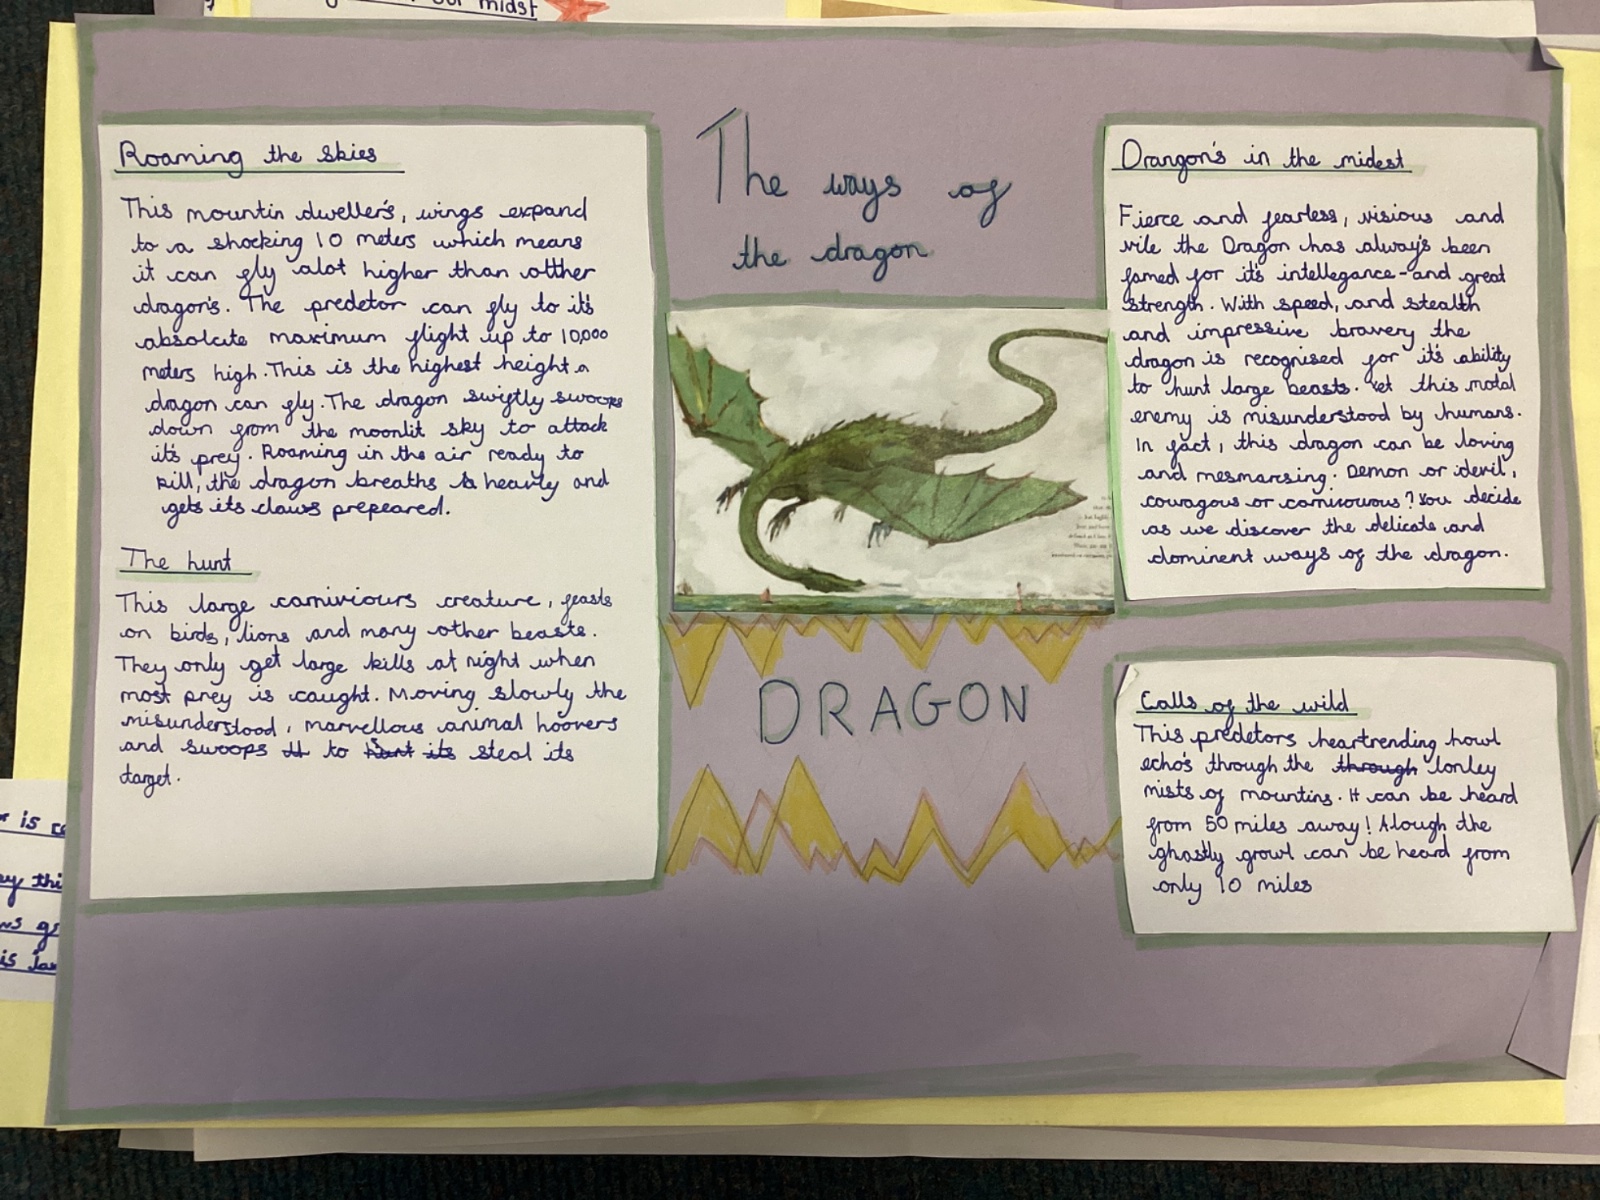 our midst
The ways of
the dragon
Roaming the skies
This mountin dweller's, wings expand
to a shocking 10 meters which means
it can fly alot higher than otther
dragon's. The predetor can fly to it's
absolute maximum flight up to 10,000
meters high. This is the highest height a
dragon can fly. The dragon swiftly swoops
down from the moonlit sky to attack
it's prey. Roaming in the air ready to
kill, the dragon breaths heavily and
gets its claws prepeared.
The hunt
This large carniviours creature, feasts
on birds, lions and many other beasts.
They only get large kills at night when
most prey is caught. Moving slowly the
misunderstood, marvellous animal hoovers
and swoops to steal its
target.
DRAGON
Drangon's in the midest
Fierce and fearless, visious and
vile the Dragon has always been
famed for it's intellegance - and great
strength. With speed, and stealth
and impressive bravery the
dragon is recognised for it's ability
to hunt large beasts. Yet this motal
enemy is misunderstood by humans.
In fact, this dragon can be loving
and mesmarsing. Demon or devil,
couragous or carnivourous? You decide
as we discover the delicate and
dominent ways of the dragon.
Calls of the wild
This predetors heartrending howl
echo's through the through lonley
mists of mountins. It can be heard
from 50 miles away! Alough the
ghostly growl can be heard from
only 10 miles